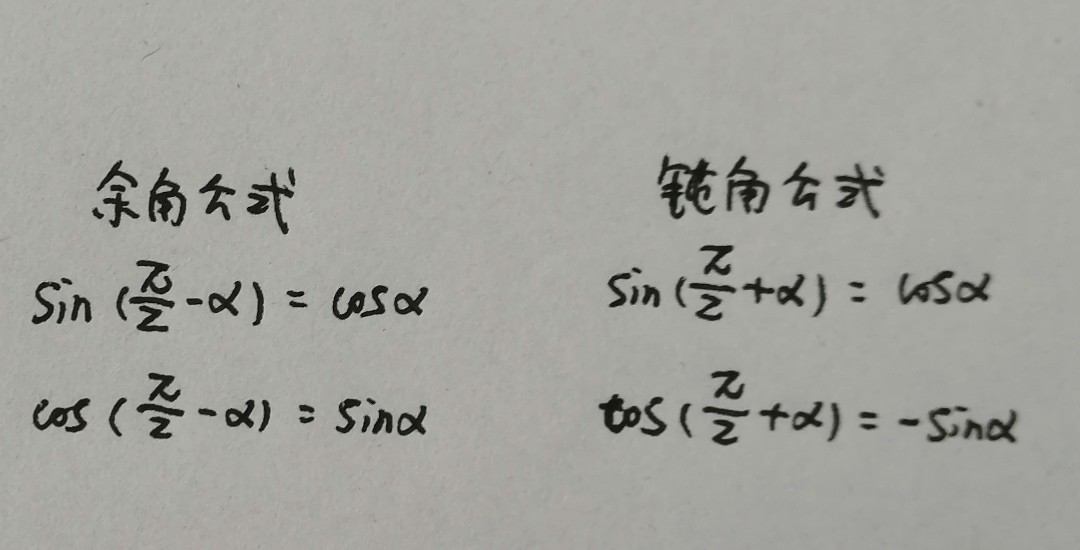 余角公式
sin(π/2-α)=cosα
cos(π/2-α)=sinα
钝角公式
sin(π/2+α)=cosα
cos(π/2+α)=-sinα